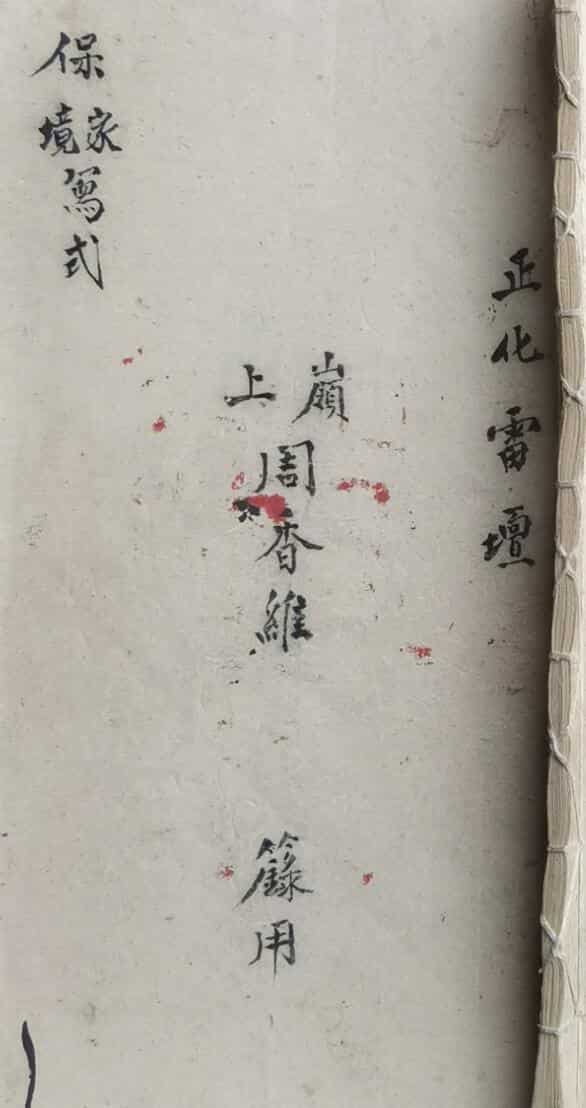 正化雷壇
嶺上周香維 籙用
保家境寫式